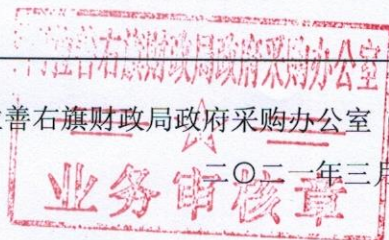 拉善右旗财政局政府采购办公室
善右旗财政局政府采购办公室
二〇二一年三月
业务审核章